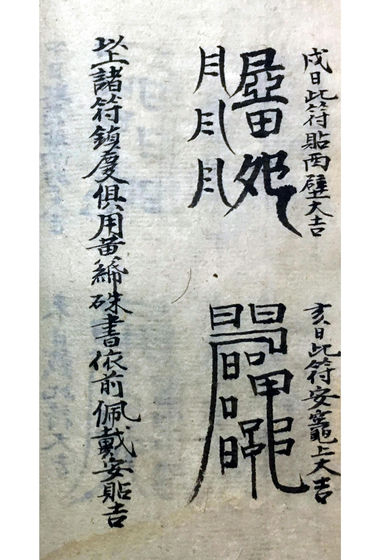 戌日此符貼西壁大吉
亥日此符安竈上大吉
以上諸符鎮處俱用黃紙硃書依前佩戴安貼吉